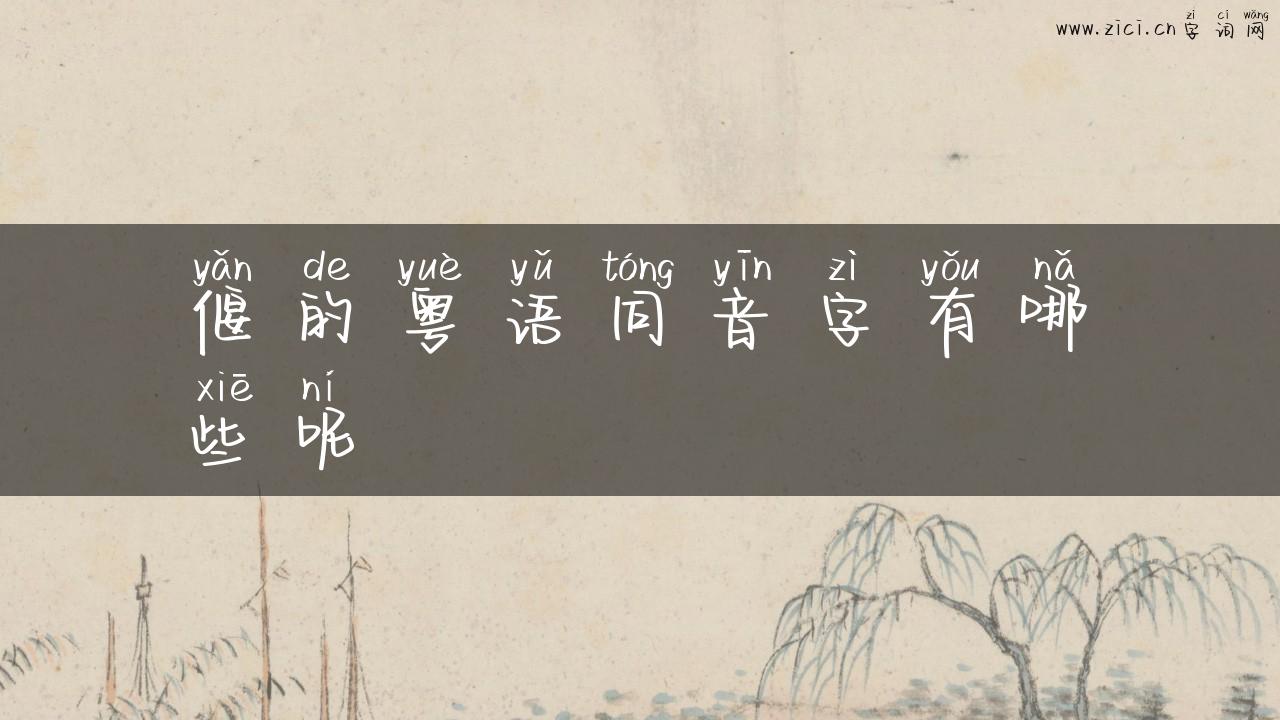 zì cí wǎng
www.zici.cn 字 词 网
yǎn de yuè yǔ tóng yīn zì yǒu nǎ
偃 的 粤 语 同 音 字 有 哪
xiē ní
些 呢